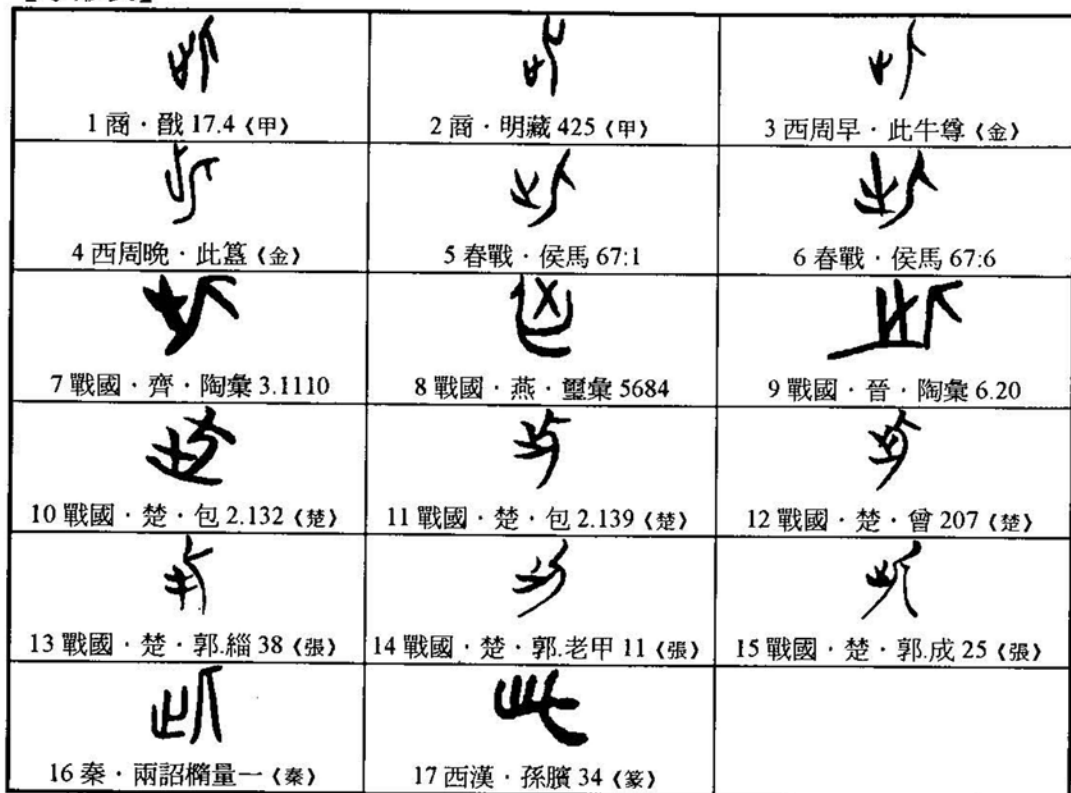 1 商．戩 17.4《甲》
2 商．明藏 425《甲》
3 西周早．此牛尊《金》
4 西周晚．此簋《金》
5 春戰．侯馬 67:1
6 春戰．侯馬 67:6
7 戰國．齊．陶彙 3.1110
8 戰國．燕．璽彙 5684
9 戰國．晉．陶彙 6.20
10 戰國．楚．包 2.132《楚》
11 戰國．楚．包 2.139《楚》
12 戰國．楚．曾 207《楚》
13 戰國．楚．郭.緇 38《張》
14 戰國．楚．郭.老甲 11《張》
15 戰國．楚．郭.成 25《張》
16 秦．兩詔橢量一《秦》
17 西漢．孫臏 34《篆》